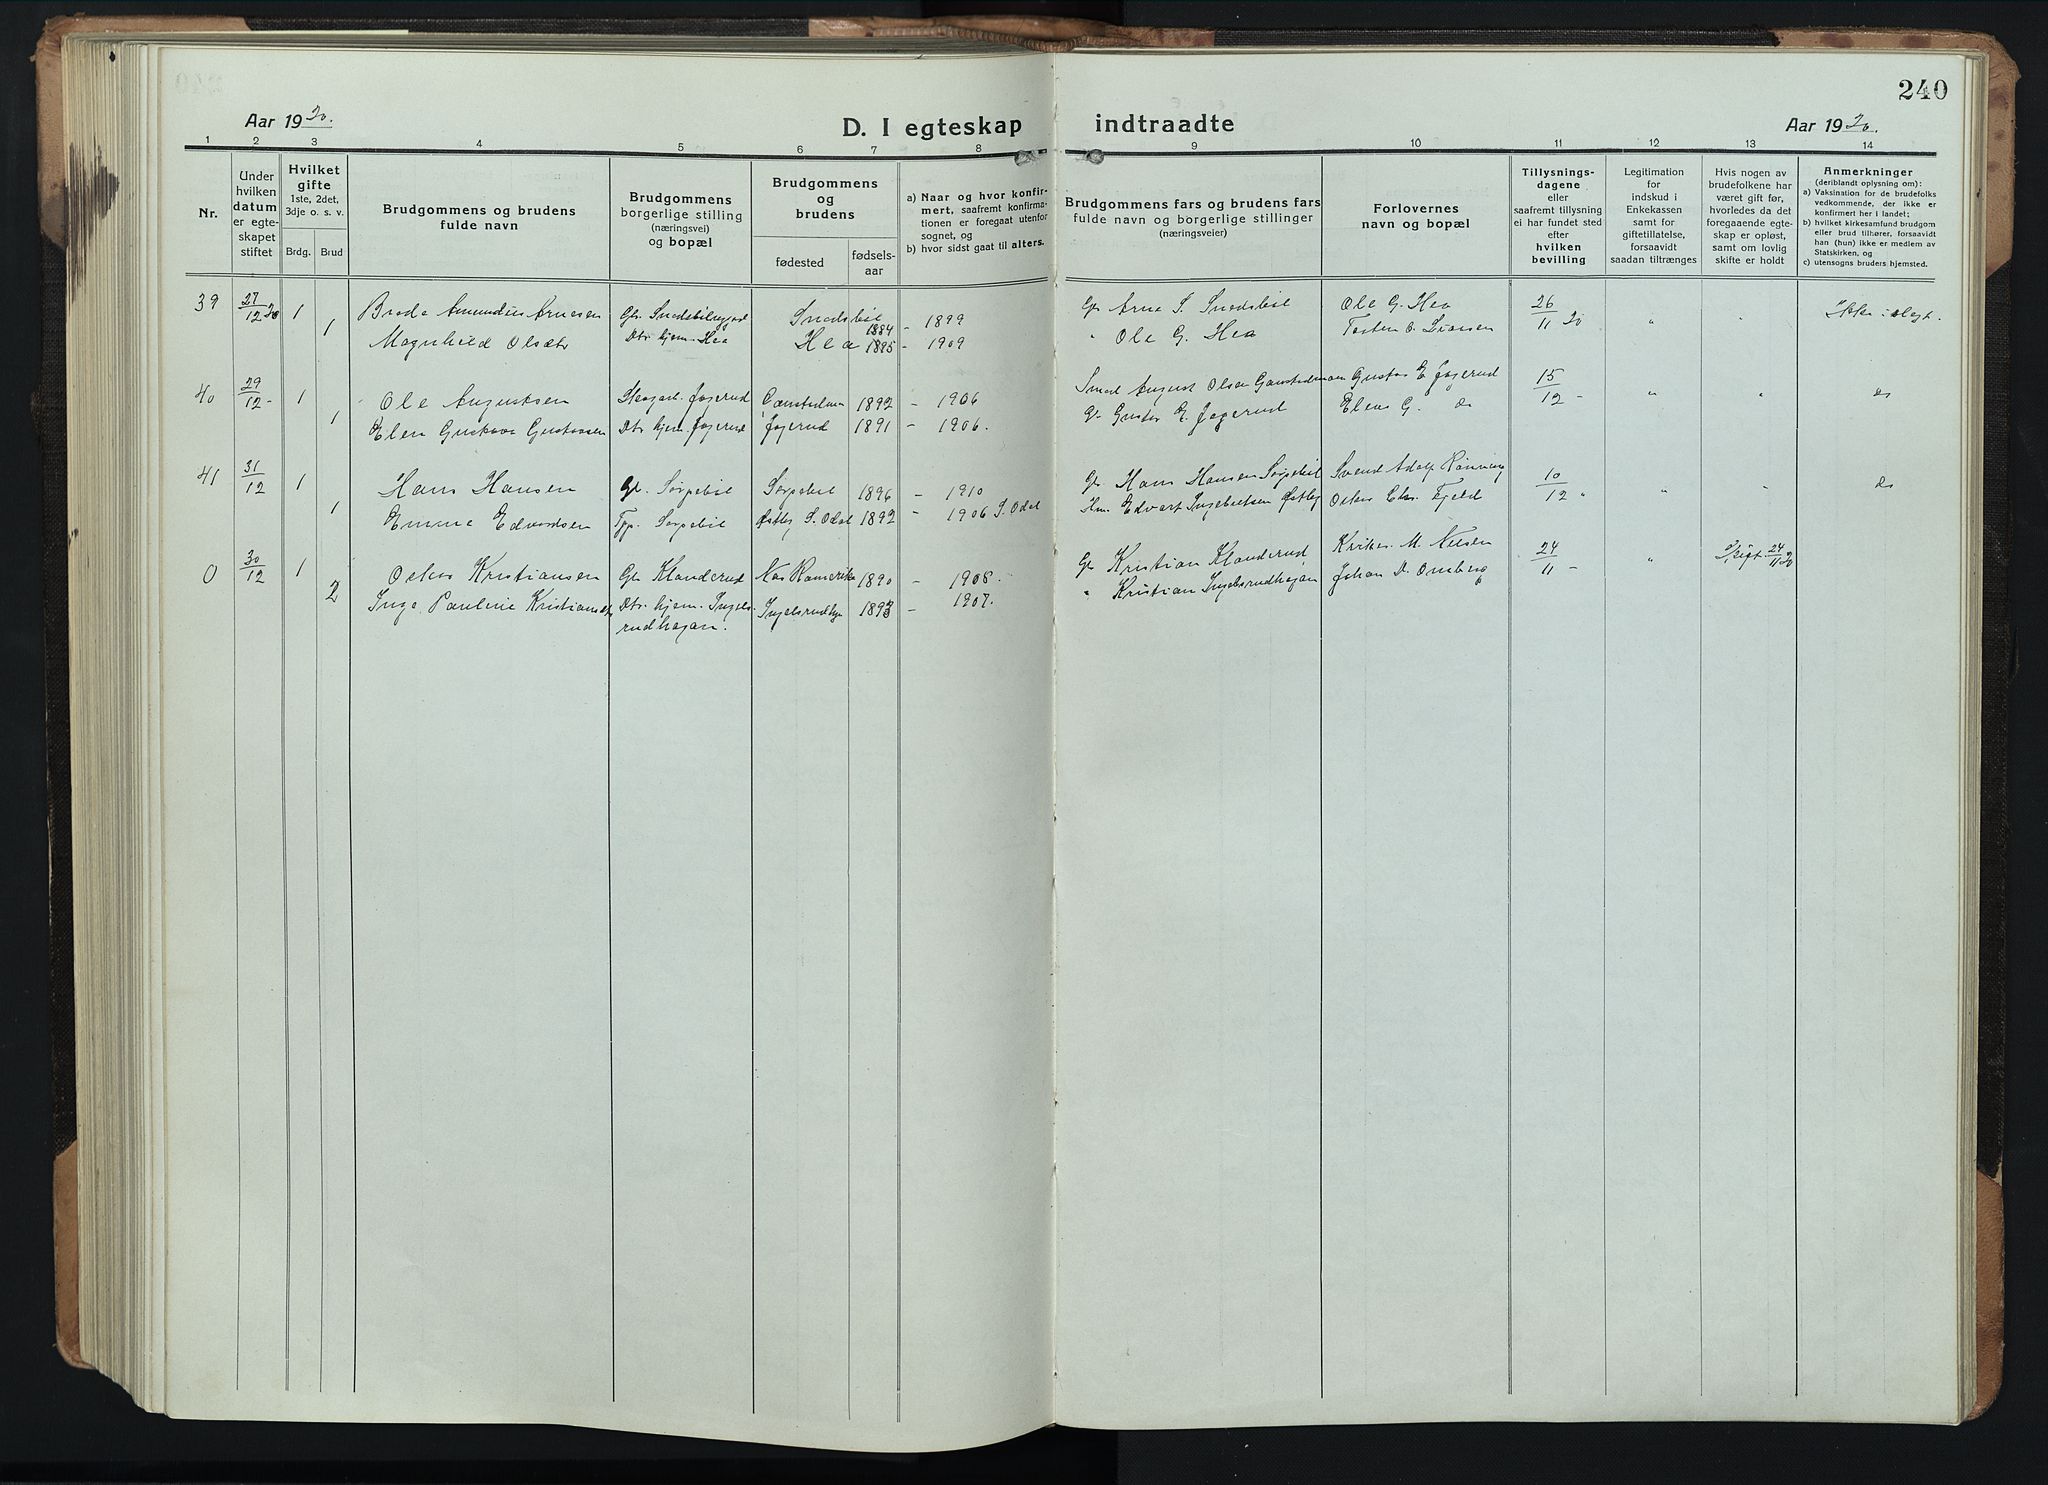 240
Aar 1920.
D. I egteskap indtraadte
Aar 1920.
1 2 3 4 5 6 7 8 9 10 11 12 13 14
Nr.
Under
hvilken
datum
er egte-
skapet
stiftet
Hvilket
gifte
1ste, 2det,
3dje o. s. v.
Brdg. Brud
Brudgommens og brudens
fulde navn
Brudgommens
borgerlige stilling
(næringsvei)
og bopæl
Brudgommens
og
brudens
fødested
fødsels-
aar
a) Naar og hvor konfir-
mert, saafremt konfirma-
tionen er foregaat utenfor
sognet, og
b) hvor sidst gaat til alters.
Brudgommens fars og brudens fars
fulde navn og borgerlige stillinger
(næringsveier)
Forlovernes
navn og bopæl
Tillysnings-
dagene
eller
saafremt tillysning
ei har fundet sted
efter
hvilken
bevilling
Legitimation
for
indskud i
Enkekassen
for
giftetillatelse,
forsaavidt
saadan tiltrænges
Hvis nogen av
brudefolkene har
været gift før,
hvorledes da det
foregaaende egte-
skap er opløst,
samt om lovlig
skifte er holdt
Anmerkninger
(deriblandt oplysning om):
a) Vaksination for de brudefolks
vedkommende, der ikke er
konfirmert her i landet;
b) hvilket kirkesamfund brudgom
eller brud tilhører, forsaavidt
han (hun) ikke er medlem av
Statskirken, og
c) utensogns bruders hjemsted.
39 27/12 20 1 Brede Amundus Arnesen Gbr. Snedsbølnygard Snedsbøl 1884 - 1899 Gbr Arne S. Snedsbøl Ole G. Hea 26/11 20 " " Ikke i slegt.
1 Magnhild Olsdtr Dtr hjem. Hea Hea 1895 - 1909 " Ole G. Hea
40 29/12 - 1 Ole Augustsen Jøgerud 1892 - 1906 Smed August Olsen Gustav E. Jøgerud 15/12 - " " do
1 Elen Gustava Gustavsen Dtr hjem. Jøgerud Jøgerud 1891 - 1906. Gbr Gustav E. Jøgerud Elias G. do
41 31/12 1 Hans Hansen Gbr. Sørpebøl Sørpebøl 1896 - 1910 Gbr Hans Hansen Sørpebøl Svend Adolf Rønning 10/12 " " " do
1 Emma Edvardsen Tpp. Sørpebøl Østby S. Odal 1892 - 1906 S. Odal Edvart Ingebretsen Østby Oskar Chr. Fjeld
0 30/12 1 Oskar Kristiansen Gbr Klanderud Nes Romerike 1890 - 1908. Gbr Kristian Klanderud M. Nilsen 24/11 - " 24/11 20
2 Inga Pauline Kristiansdtr Dtr. hjem. Ingels- 1893 - 1907. " Kristian Ingelsrudhagan Johan D. Omberg
rudhagan.